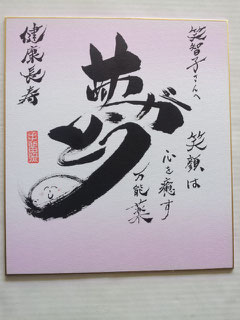 笑智子さんへ
笑顔は
心を癒す
万能薬
ありがとう
健康長寿